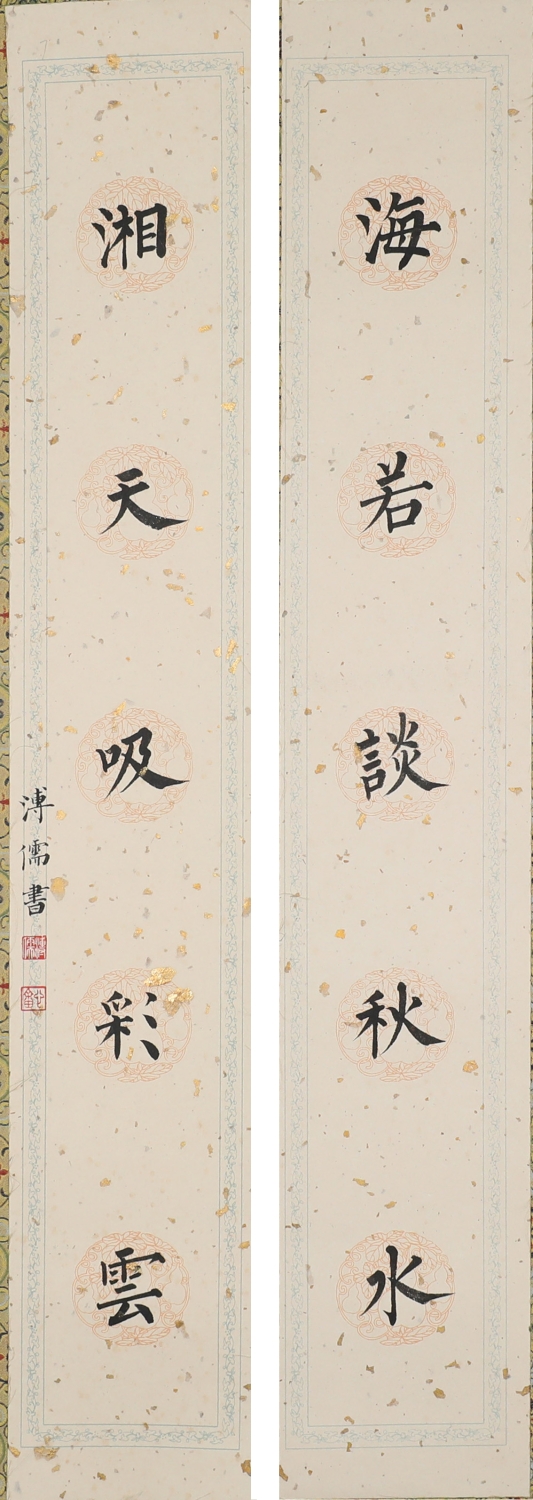 海若談秋水
湘天吸彩雲
溥儒書